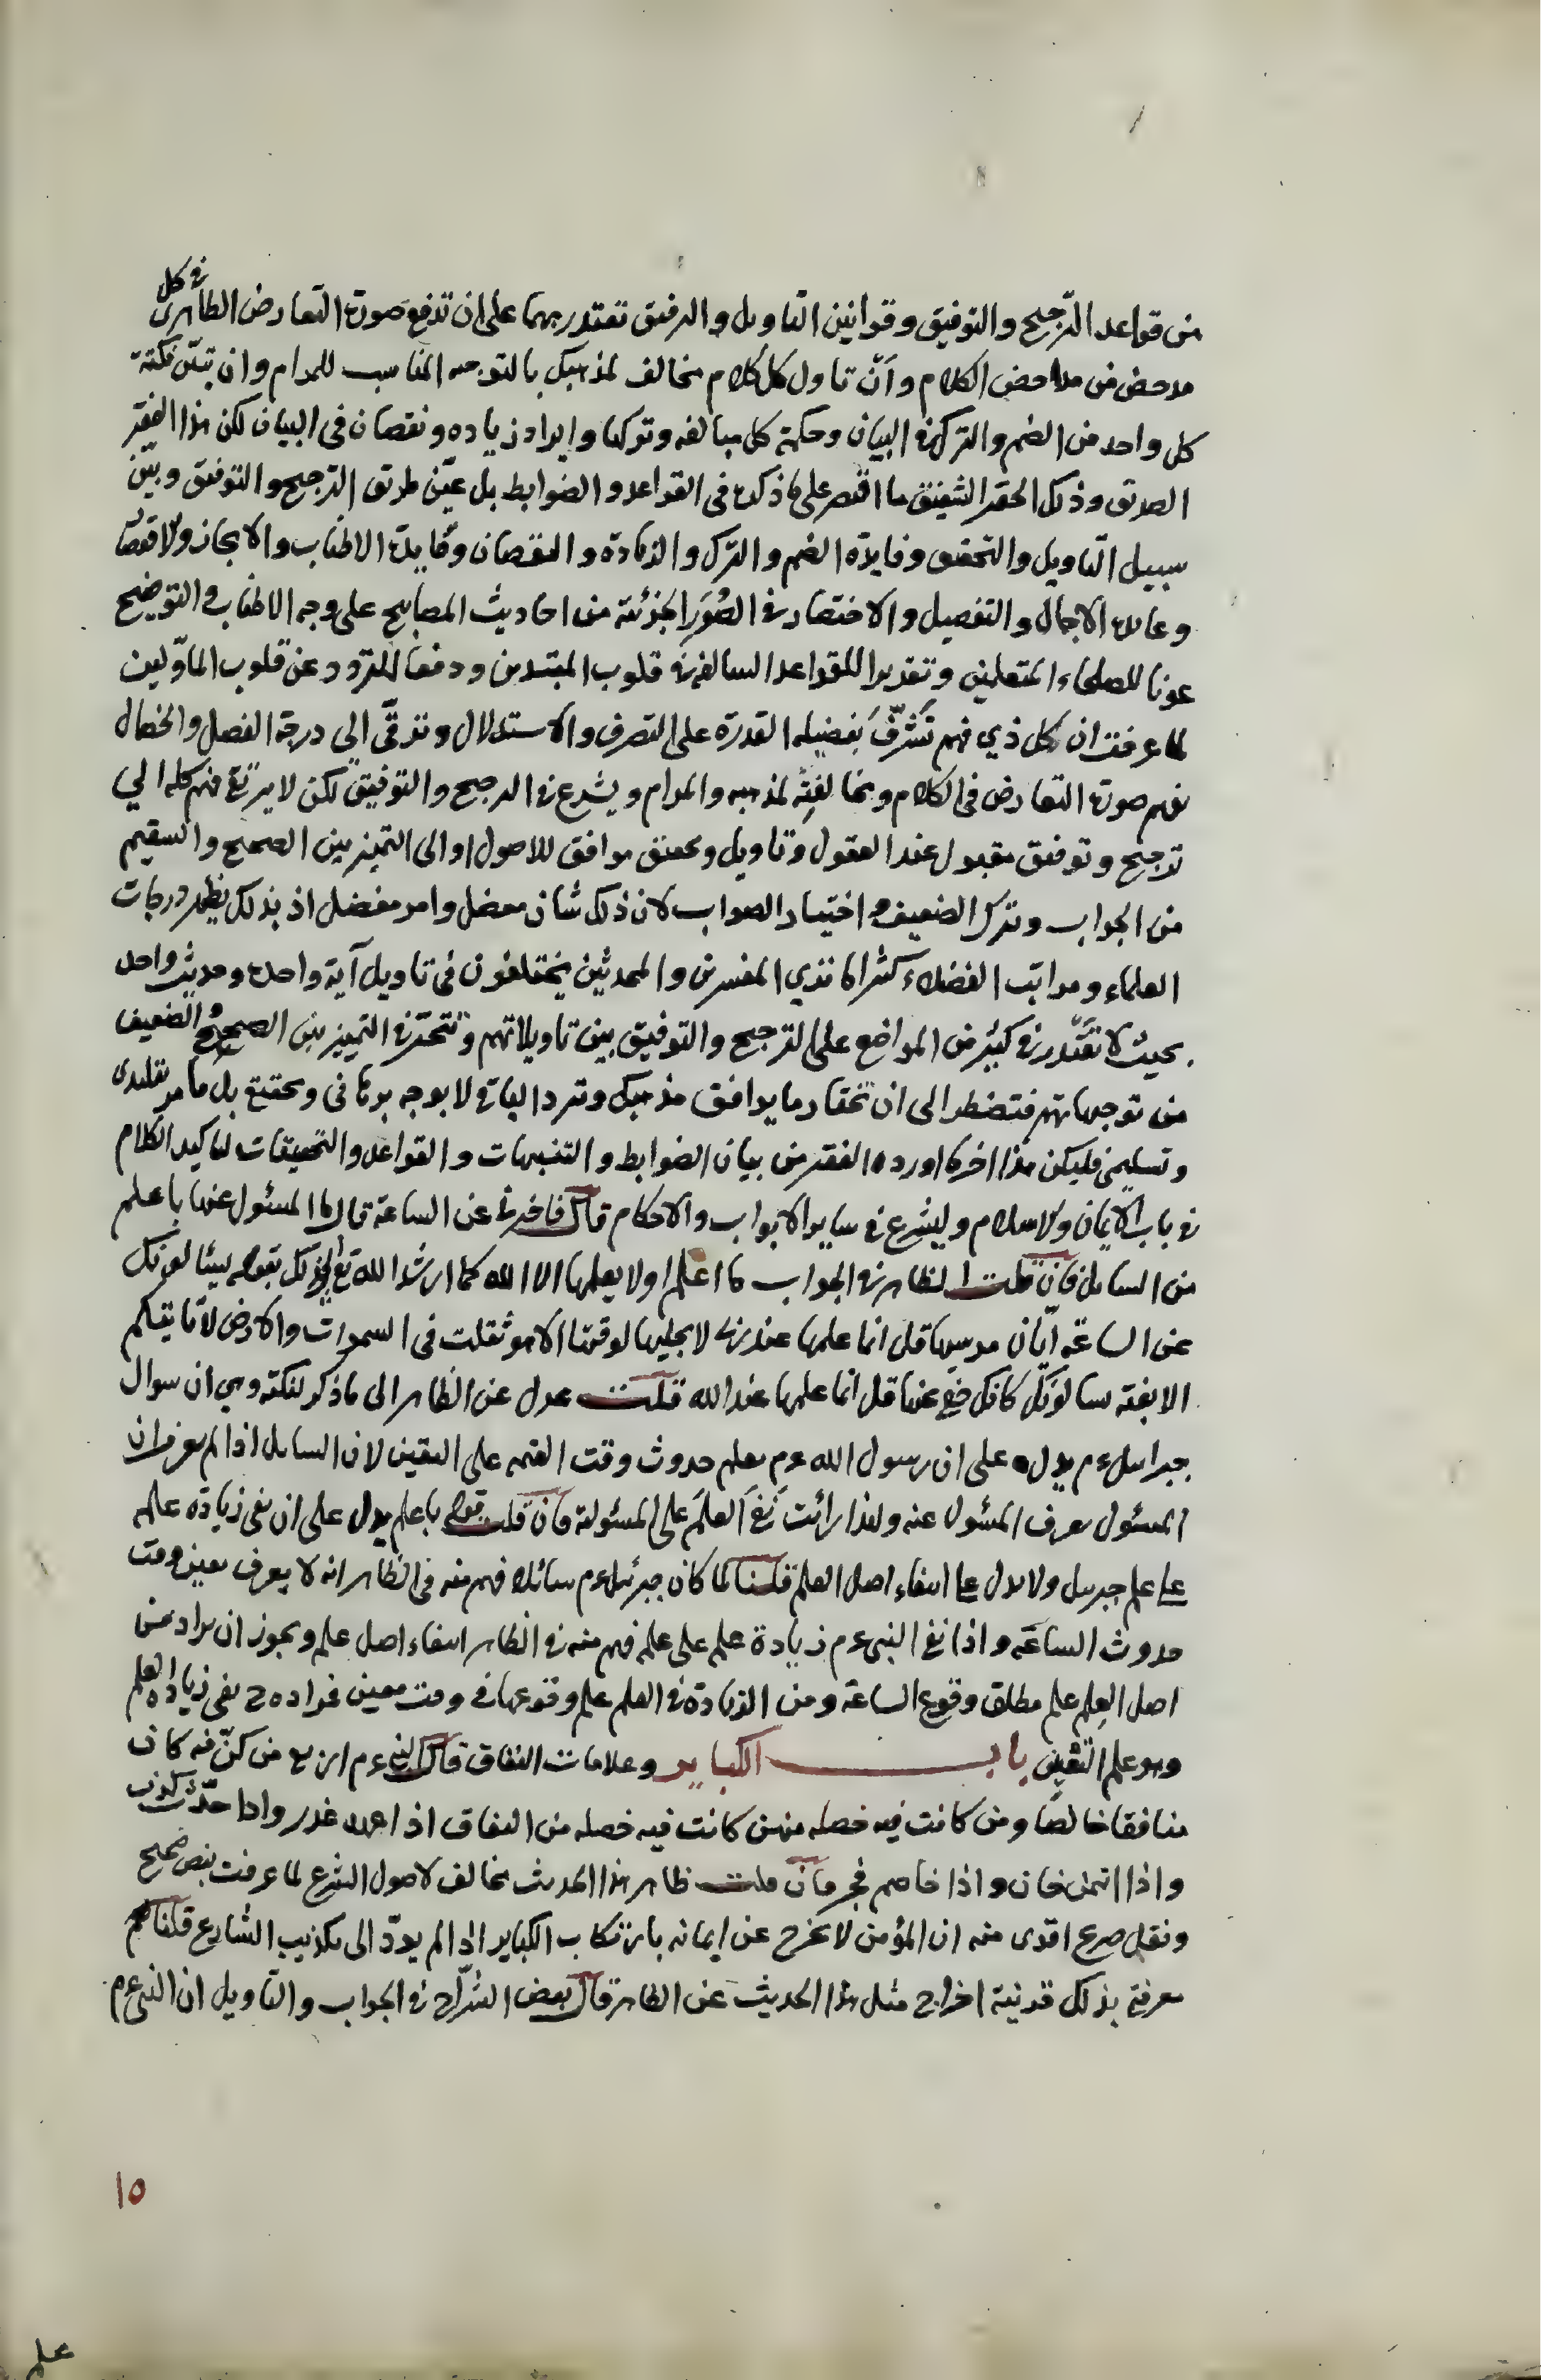 من قواعد الترجيح والتوفيق وقوانين التاويل والترفيق تقتدر بهما على ان تدفع صورة التعارض الظاهرى في كل
مدحض من مداحض الكلام وان تاول كل كلام مخالف لمذهبك بالتوجيه المناسب للمرام وان تبين نكتة
كل واحد من الضم والترك في البيان وحكمة كل مبالغه وتركها وايراد زياده ونقصان في البيان لكن هذا الفقير
الصديق وذلك الحقير الشفيق ما اقتصر على ما ذكره في القواعد والضوابط بل عين طريق الترجيح والتوفيق وبين
سبيل التاويل والتحقيق وفايدة الضم والترك والزيادة والنقصان وفايدة الاطناب والايجاز والاقتصار
وعايدة الاجمال والتفصيل والاختصار في الصور الجزئية من احاديث المصابيح على وجه الاطناب والتوضيح
عونا للصلحاء المتعلمين وتقديرا للقواعد السالفة في قلوب المبتدين ودفعا للتردد عن قلوب الماولين
لما عرفت ان كل ذي فهم تشرف بفضيله القدرة على التصرف والاستدلال وترقى الى درجة الفضل والخصال
يفهم صورة التعارض في الكلام ومخالفته لمذهبه والمرام ويشرع في الترجيح والتوفيق لكن لا يرتقى فهم كله الي
ترجيح وتوفيق مقبول عند العقول وتاويل وتحقيق موافق للاصول او الى التمييز بين الصحيح والسقيم
من الجواب وترك الضعيف واختيار الصواب لان ذلك شان معضل وامر مفضل اذ بذلك يظهر درجات
العلماء ومراتب الفضلاء كثيرا ما تري المفسرين والمحدثين يختلفون في تاويل آية واحدة وحديث واحد
بحيث لا تقتدر في كثير من المواضع على الترجيح والتوفيق بين تاويلاتهم وتتحير في التمييز بين الصحيح والضعيف
من توجيهاتهم فتضطر الى ان تختار ما يوافق مذهبك وترد الباقي لا بوجه برهاني وتحقيقي بل بامر تقليدى
وتسليمي فليكن هذا اخر ما اورده الفقير من بيان الضوابط والتنبيهات والقواعد والتحقيقات لتاكيد الكلام
في باب الايمان والاسلام وليشرع في ساير الابواب والاحكام قال فاخبرني عن الساعة قال ما المسئول عنها باعلم
من السايل فان قلت الظاهر في الجواب ما اعلم او لا يعلمها الا الله كما ارشد الله تع الى ذلك بقوله يسئالونك
عن الساعة ايان مرسيها قل انما علمها عند ربي لا يجليها لوقتها الا هو ثقلت في السموات والارض لا تاتيكم
الا بغتة يسالونك كانك حفي عنها قل انما علمها عند الله قلت عدل عن الظاهر الى ما ذكر لنكتة وهي ان سوال
جبرايل ءم يدل على ان رسول الله ءم يعلم حدوث وقت القيمة على اليقين لان السايل اذا لم يعرف ان
المسئول يعرف المسئول عنه ولهذا رائت نفي العلم على المسئولية فان قلت قوله باعلم يدل على ان نفي زيادة علمه
على علم جبريل ولا يدل على انتفاء اصل العلم قلنا لما كان جبرئيل ءم سائلا فهم منه في الظاهر انه لا يعرف تعيين وقت
حدوث الساعة واذا نفى النبي ءم زيادة علم على علمه فهم منه في الظاهر انتفاء اصل علم ويجوز ان يراد من
اصل العلم علم مطلق وقوع الساعة ومن الزيادة في العلم علم وقوعها في وقت معين فمراده ح نفي زيادة العلم
وهو علم التعيين باب الكباير وعلامات النفاق قال النبي ءم اربع من كن فيه كان
منافقا خالصا ومن كانت فيه خصله منهن كانت فيه خصله من النفاق اذا عاهد غدر واذا حدث كذب
واذا ائتمن خان واذا خاصم فجر فان قلت ظاهر هذا الحديث مخالف لاصول الشرع لما عرفت بنص صحيح
ونقل صريح اقوى منه ان المؤمن لا يخرج عن ايمانه بارتكاب الكباير اذا لم يود الى تكذيب الشارع قلنا نعم
معرفة بذلك قرينة اخراج مثل هذا الحديث عن الظاهر قال بعض الشراح في الجواب والتاويل ان النبي ءم
١٥
علم